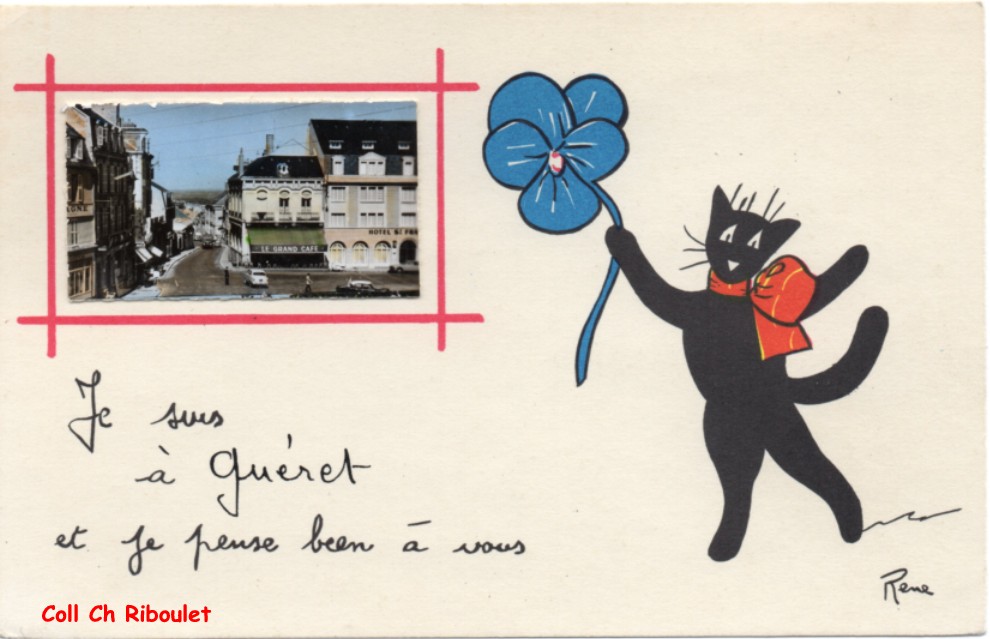 HOTEL St FRAN
LE GRAND CAFE
Je suis
à Guéret
et je pense bien à vous
Rene
Coll Ch Riboulet